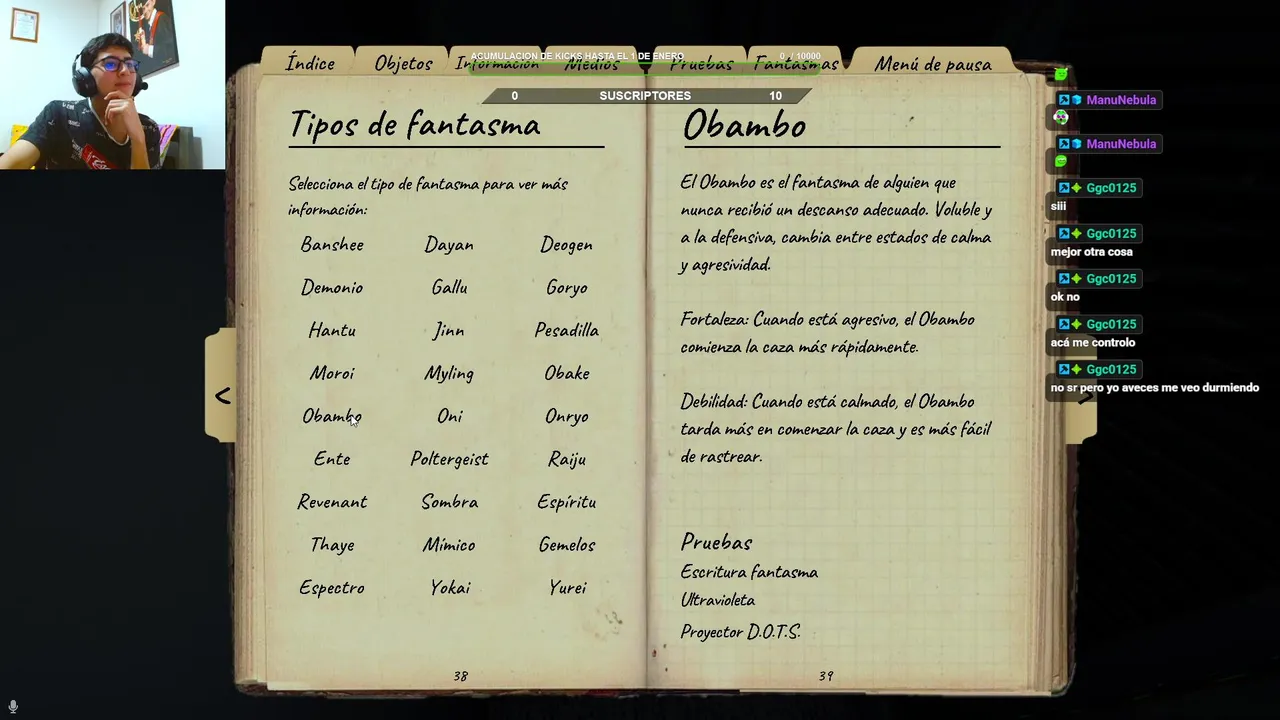 Índice
Objetos
Información
Medios
Pruebas
Fantasmas
Menú de pausa
ACUMULACION DE KICKS HASTA EL 1 DE ENERO
0 / 10000
0
SUSCRIPTORES
10
Tipos de fantasma
Selecciona el tipo de fantasma para ver más
información:
Banshee Dayan Deogen
Demonio Gallu Goryo
Hantu Jinn Pesadilla
Moroi Myling Obake
Obambo Oni Onryo
Ente Poltergeist Raiju
Revenant Sombra Espíritu
Thaye Mímico Gemelos
Espectro Yokai Yurei
38
Obambo
El Obambo es el fantasma de alguien que
nunca recibió un descanso adecuado. Voluble y
a la defensiva, cambia entre estados de calma
y agresividad.
Fortaleza: Cuando está agresivo, el Obambo
comienza la caza más rápidamente.
Debilidad: Cuando está calmado, el Obambo
tarda más en comenzar la caza y es más fácil
de rastrear.
Pruebas
Escritura fantasma
Ultravioleta
Proyector D.O.T.S.
39
<
>
ManuNebula
ManuNebula
Ggc0125
siii
Ggc0125
mejor otra cosa
Ggc0125
ok no
Ggc0125
acá me controlo
Ggc0125
no sr pero yo aveces me veo durmiendo